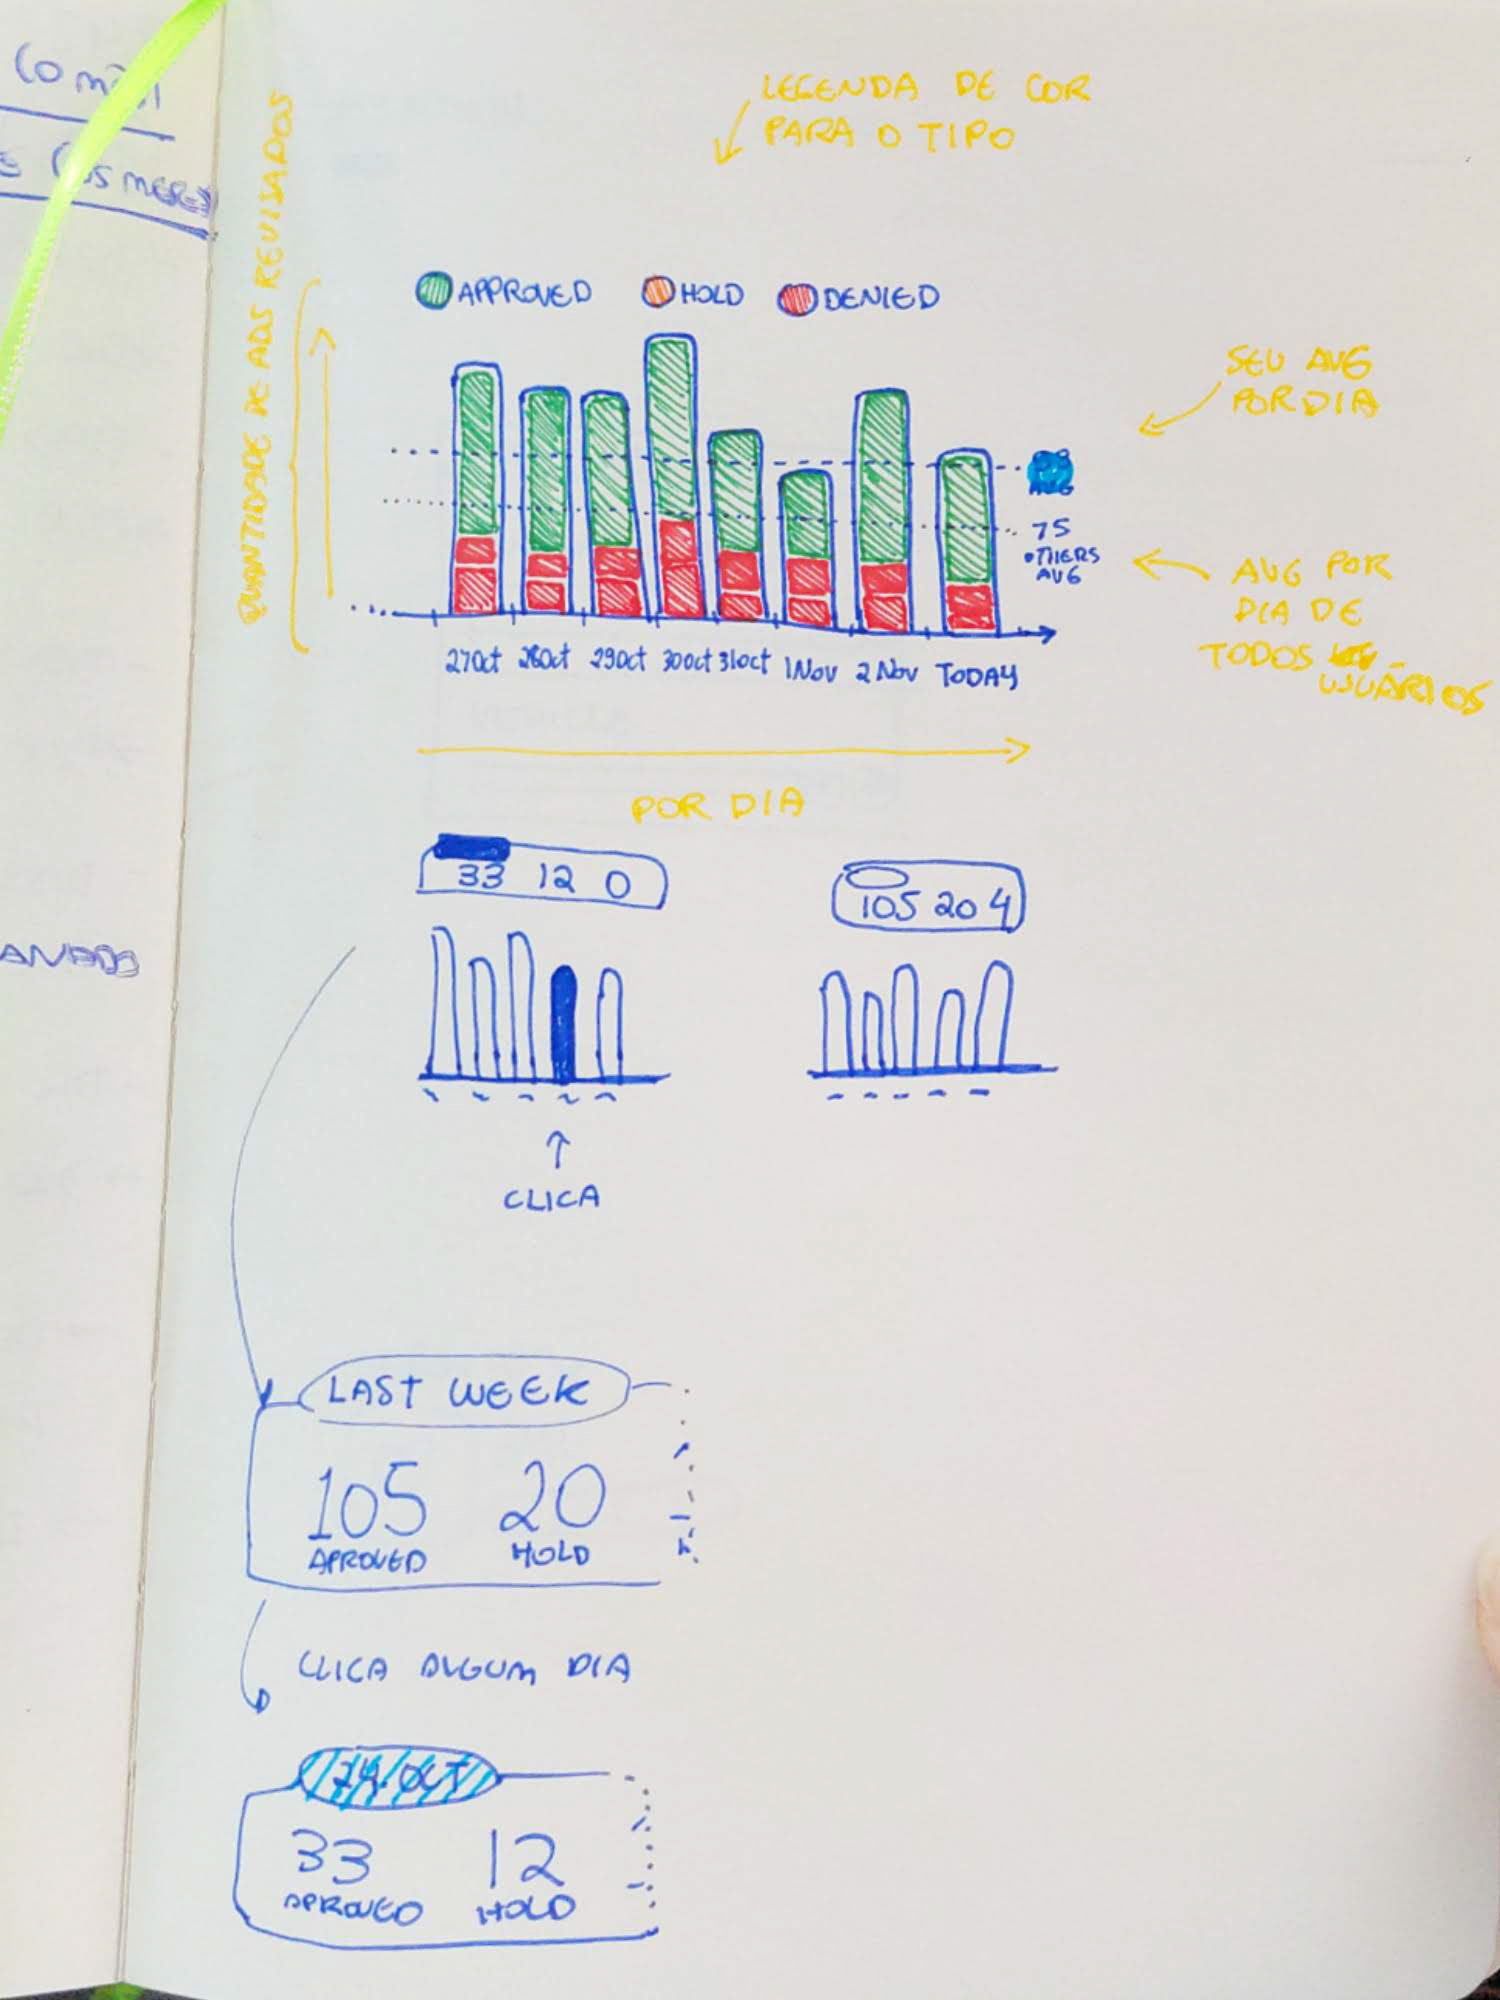 LEGENDA DE COR
PARA O TIPO
QUANTIDADE DE ADS REVISADOS
APPROVED HOLD DENIED
SEU AVG
POR DIA
AVG
75
OTHERS
AVG
AVG POR
DIA DE
TODOS
USUÁRIOS
27 Oct 28 Oct 29 Oct 30 Oct 31 Oct 1 Nov 2 Nov TODAY
POR DIA
33 12 0
105 20 4
CLICA
LAST WEEK
105 20
APROVED HOLD
CLICA ALGUM DIA
33 12
APROVED HOLD